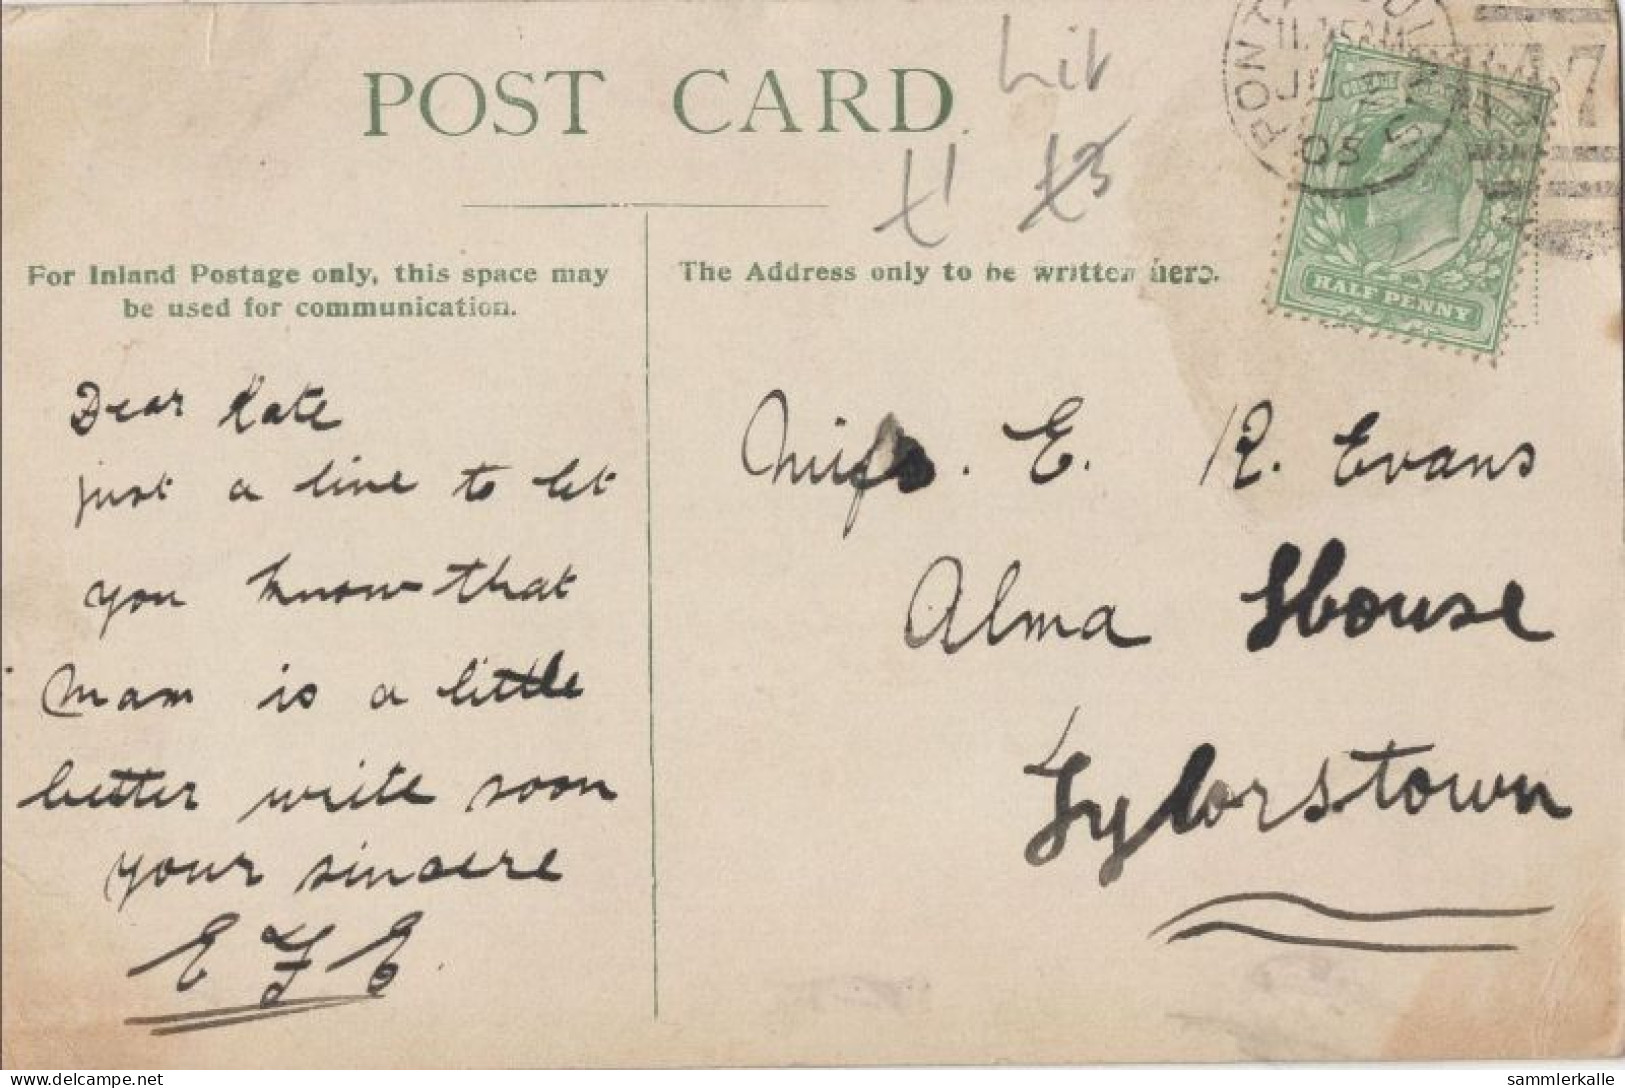 POST CARD
Lit
£1 £3
For Inland Postage only, this space may
be used for communication.
The Address only to be written here.
11.15AM
JU
05
HALF PENNY
Dear Kate
just a line to let
you know that
Mam is a little
better write soon
your sincere
E J E.
Miss. E. R. Evans
Alma House
Tylorstown
sammlerkalle